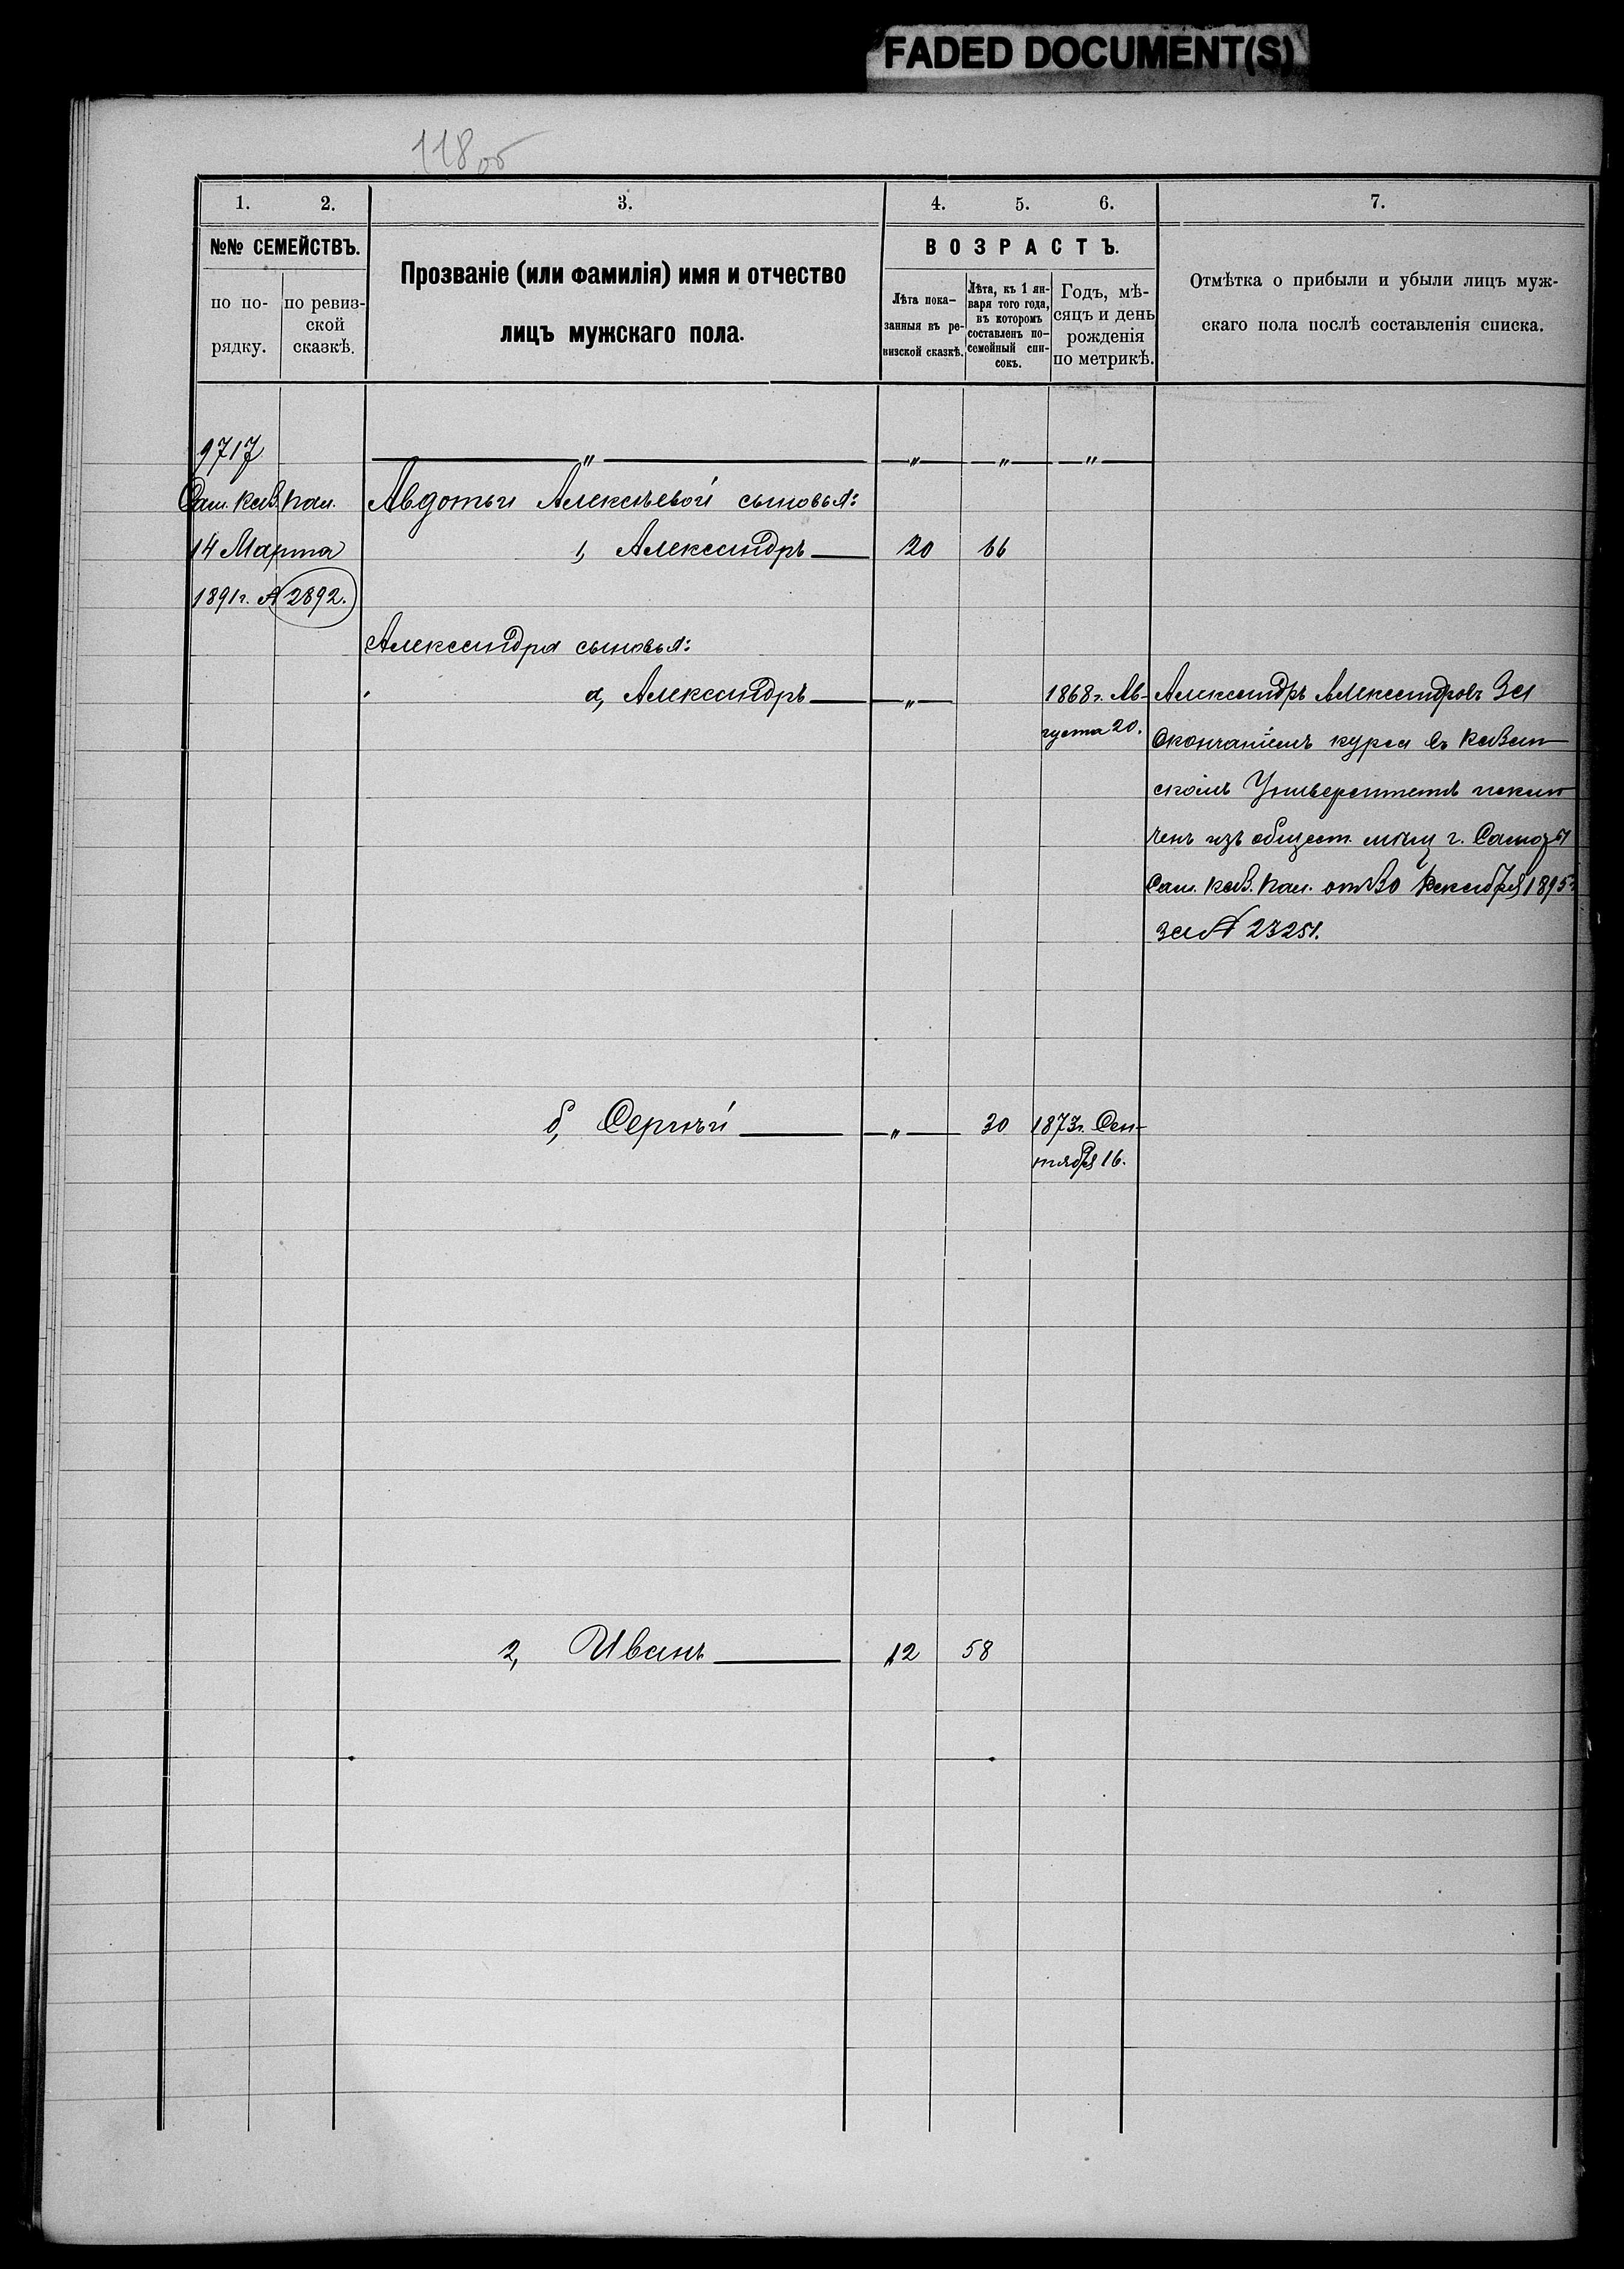 FADED DOCUMENT(S)
118 об
1. 2. 3. 4. 5. 6. 7.
№№ СЕМЕЙСТВЪ.
по по-
рядку.
по ревиз-
ской
сказкѣ.
Прозваніе (или фамилія) имя и отчество
лицъ мужскаго пола.
ВОЗРАСТЪ.
Лѣта пока-
занныя въ ре-
визской сказкѣ.
Лѣта, къ 1 ян-
варя того года,
въ которомъ
составленъ по-
семейный спи-
сокъ.
Годъ, мѣ-
сяцъ и день
рожденія
по метрикѣ.
Отмѣтка о прибыли и убыли лицъ муж-
скаго пола послѣ составленія списка.
9717 — " — — " — — " — — " —
Сам. Каз. Пал. Авдотьи Алексѣевой сыновья:
14 Марта 1, Александръ — 20 66
1891 г. № 2892.
Александра сыновья:
а, Александръ — — " — 1868 г. Ав-
густа 20.
Александръ Александровъ за
окончаніемъ курса въ Казан-
скомъ Университетѣ исклю
ченъ изъ общест. мѣщ г. Самары
Сам. Каз. Пал. отъ 30 Декабря 1895 г
за № 23251.
б, Сергѣй — — " — 30 1873 г. Сен-
тября 16.
2, Иванъ — 12 58